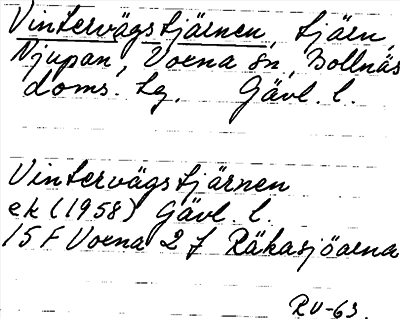 Vintervägstjärnen, tjärn,
Njupan, Voxna sn, Bollnäs
doms. tg. Gävl. l.
Vintervägstjärnen
ek (1958) Gävl. l.
15 F Voxna 2 f Räkasjöarna
RV-63.